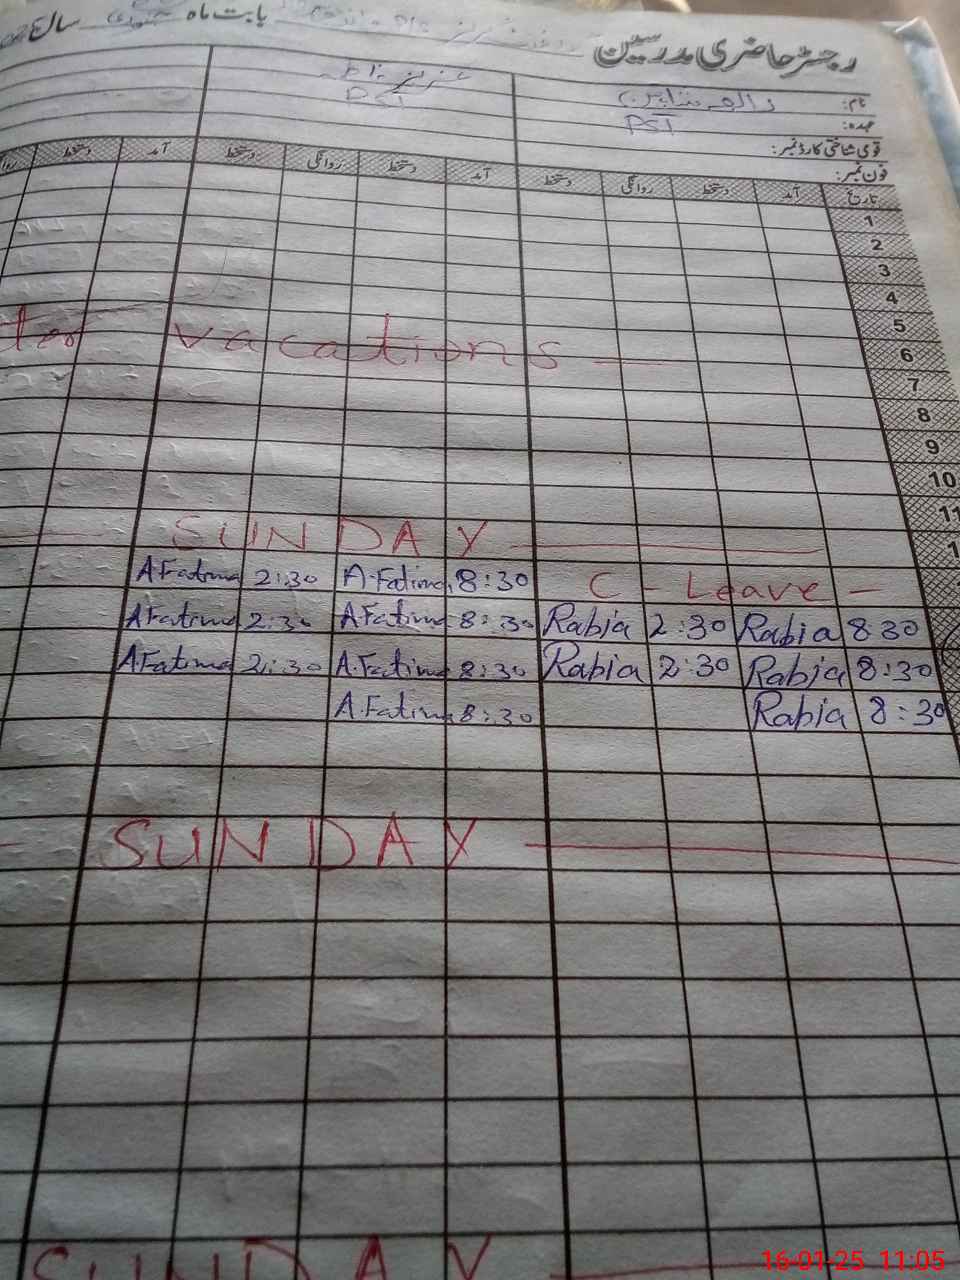 رجسٹر حاضری مدرسین بابت ماہ سال
نام:
عہدہ: PST PST
قومی شناختی کارڈ نمبر:
فون نمبر:
تاریخ آمد دستخط روانگی دستخط آمد دستخط روانگی دستخط آمد دستخط
1
2
3
4
5
6
vacations
7
8
9
10
11
SUNDAY
A.Fatima 2:30 A.Fatima 8:30 C - Leave -
A.Fatima 2:30 A.Fatima 8:30 Rabia 2:30 Rabia 8 30
A.Fatima 2:30 A.Fatima 8:30 Rabia 2:30 Rabia 8:30
A.Fatima 8:30 Rabia 8:30
SUNDAY
SUNDAY
16-01-25 11:05